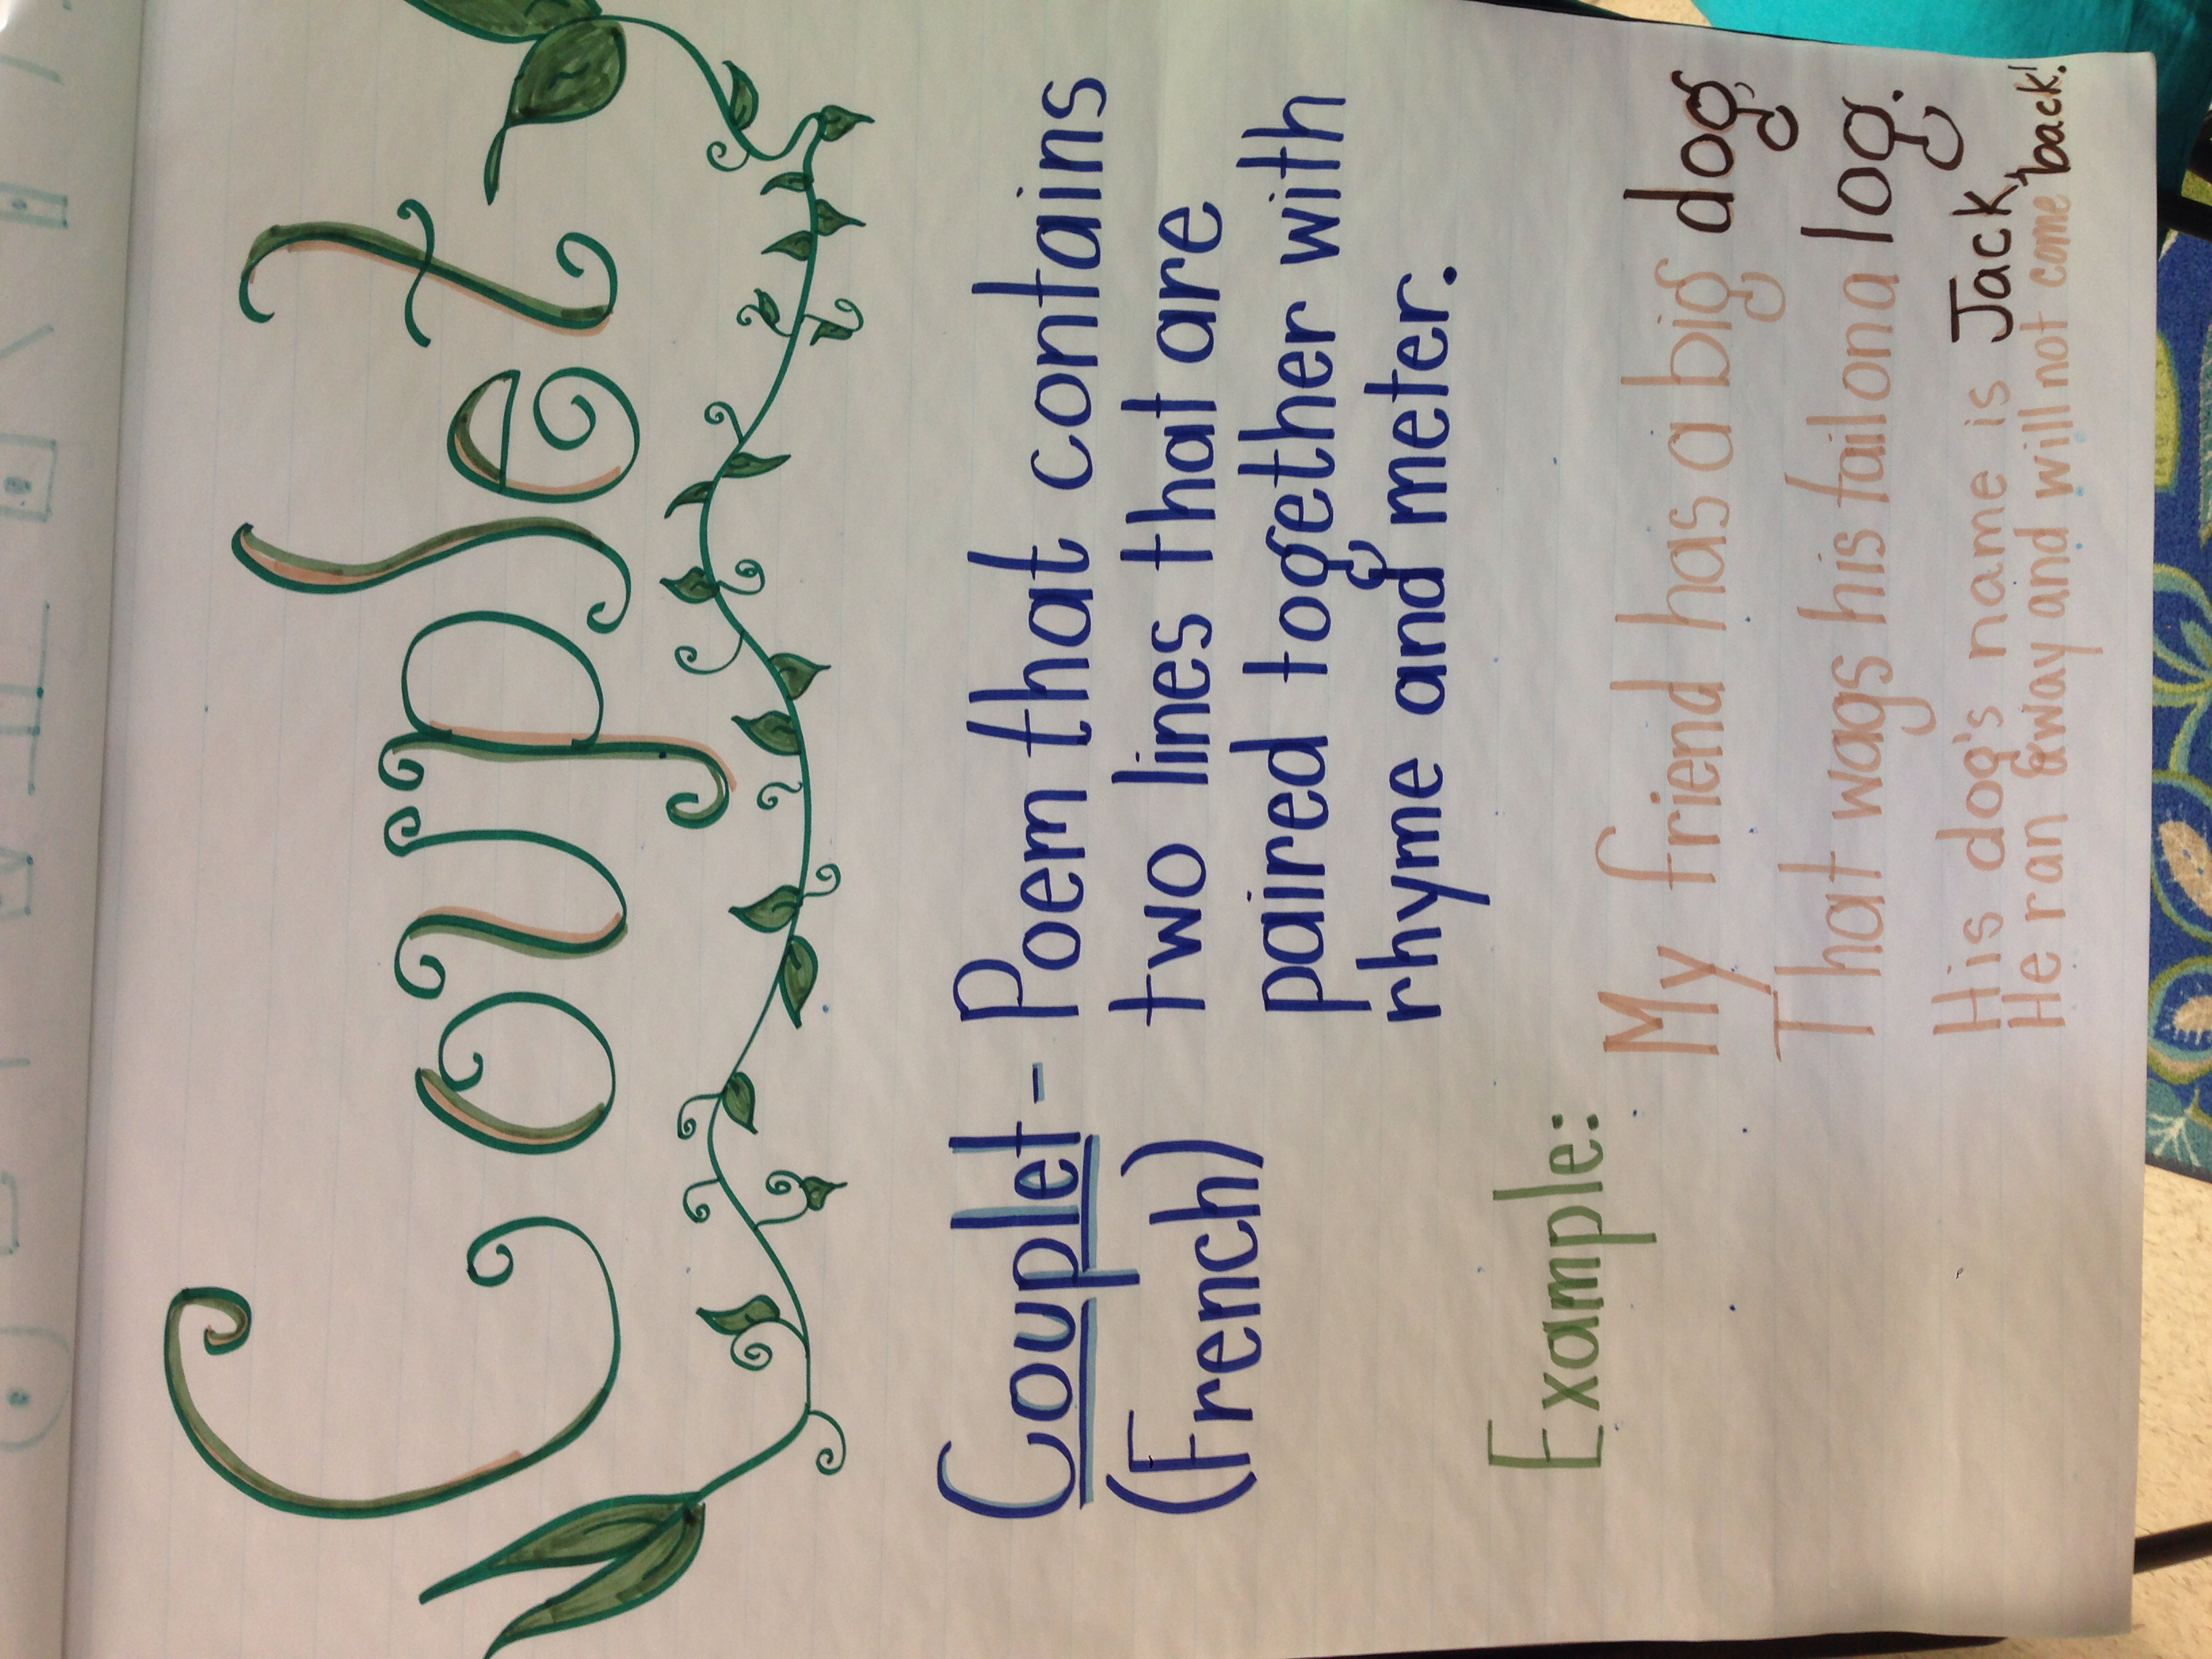 Couplet
Couplet- Poem that contains
(French) two lines that are
paired together with
rhyme and meter.
Example:
My friend has a big dog,
That wags his tail on a log.
His dog's name is Jack,
He ran away and will not come back!